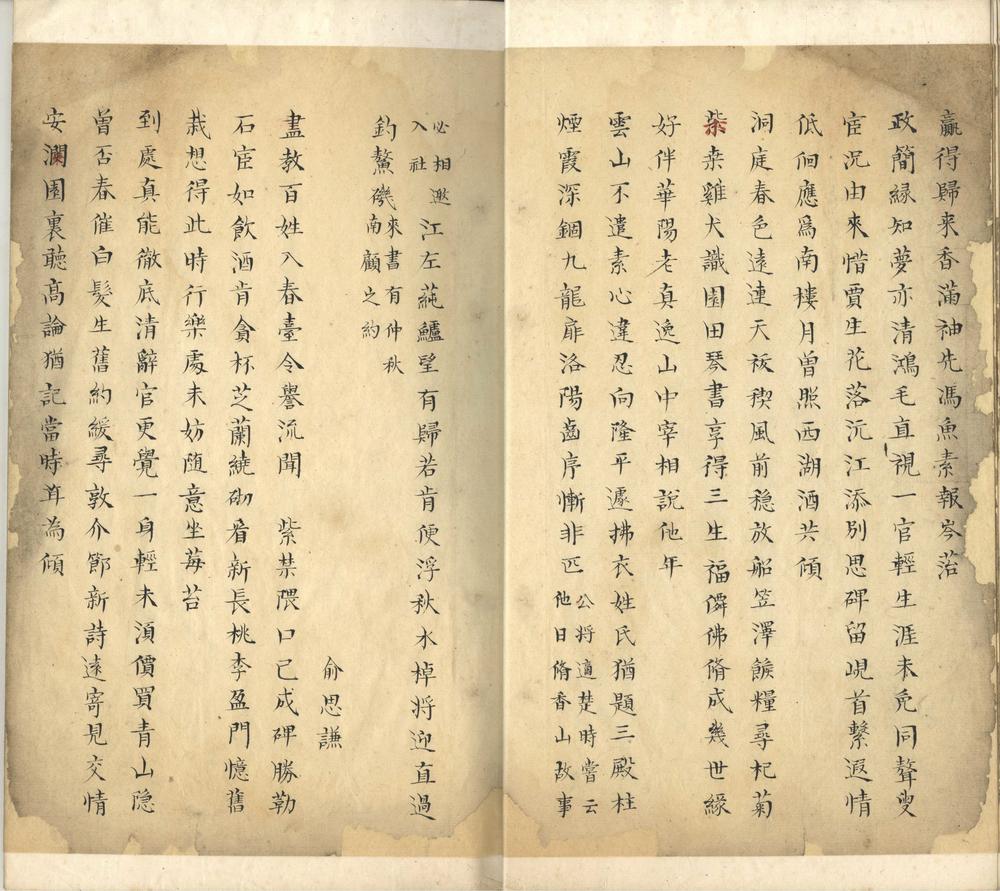 贏得歸來香滿袖先馮魚素報岑苔
政簡緣知夢亦清鴻毛直視一官輕生涯未免同聲叟
宦況由來惜賈生花落沅江添別思碑留峴首繫遐情
低佪應爲南樓月曾照西湖酒共傾
洞庭春色遠連天袚禊風前穏放船笠澤餱糧尋杞菊
柴桒雞犬識園田琴書享得三生福僊佛脩成幾世緣
好伴華陽老真逸山中宰相說他年
雲山不遣素心違忍向隆平遽拂衣姓氏猶題三殿柱
煙霞深錮九龍扉洛陽齒序慚非匹公將適楚時嘗云他日脩香山故事
必相邀入社江左蒓鱸望有歸若肯便浮秋水棹將迎直過
釣鰲磯來書有仲秋南顧之約
俞思謙
盡教百姓入春臺令譽流聞紫禁隈口已成碑勝勒
石宦如飲酒肯貪杯芝蘭繞砌看新長桃李盈門憶舊
栽想得此時行樂處未妨随意坐莓苔
到處真能徹底清辭官更覺一身輕未湏價買青山隐
曾否春催白髮生舊約緩尋敦介節新詩遠寄見交情
安瀾園裏聽高論猶記當時耳為傾